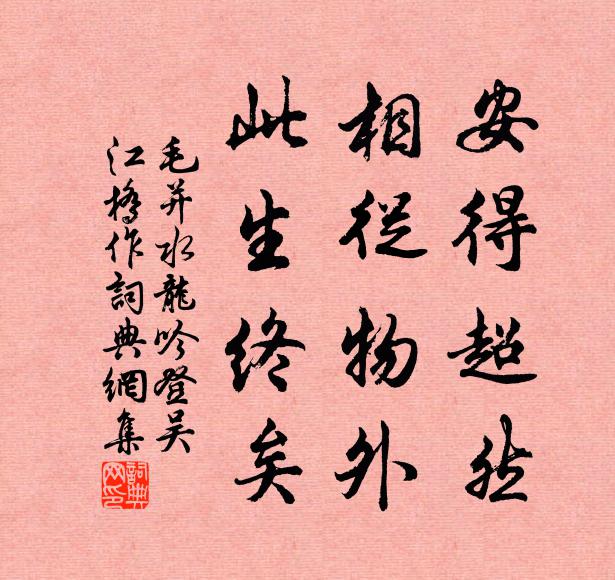 安得超然
相從物外
此生終矣
毛并水龍吟登吴
江橋作詞典網集
詞典
网印